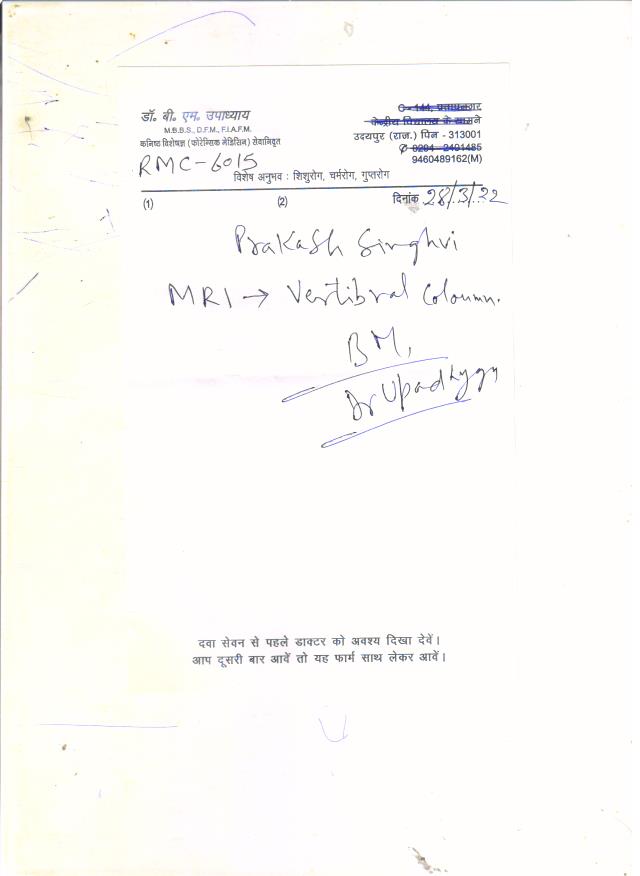 डॉ. बी. एम. उपाध्याय
M.B.B.S., D.F.M., F.I.A.F.M.
कनिष्ठ विशेषज्ञ (फोरेन्सिक मेडिसिन) सेवानिवृत
RMC-6015
C-144, प्रतापनगर
केन्द्रीय विद्यालय के सामने
उदयपुर (राज.) पिन - 313001
0294-2491485
9460489162(M)
विशेष अनुभव : शिशुरोग, चर्मरोग, गुप्तरोग
(1) (2) दिनांक 28/3/22
Prakash Singhvi
MRI → Vertibral Coloumn.
BM,
Dr Upadhyay
दवा सेवन से पहले डाक्टर को अवश्य दिखा देवें।
आप दूसरी बार आवें तो यह फार्म साथ लेकर आवें।